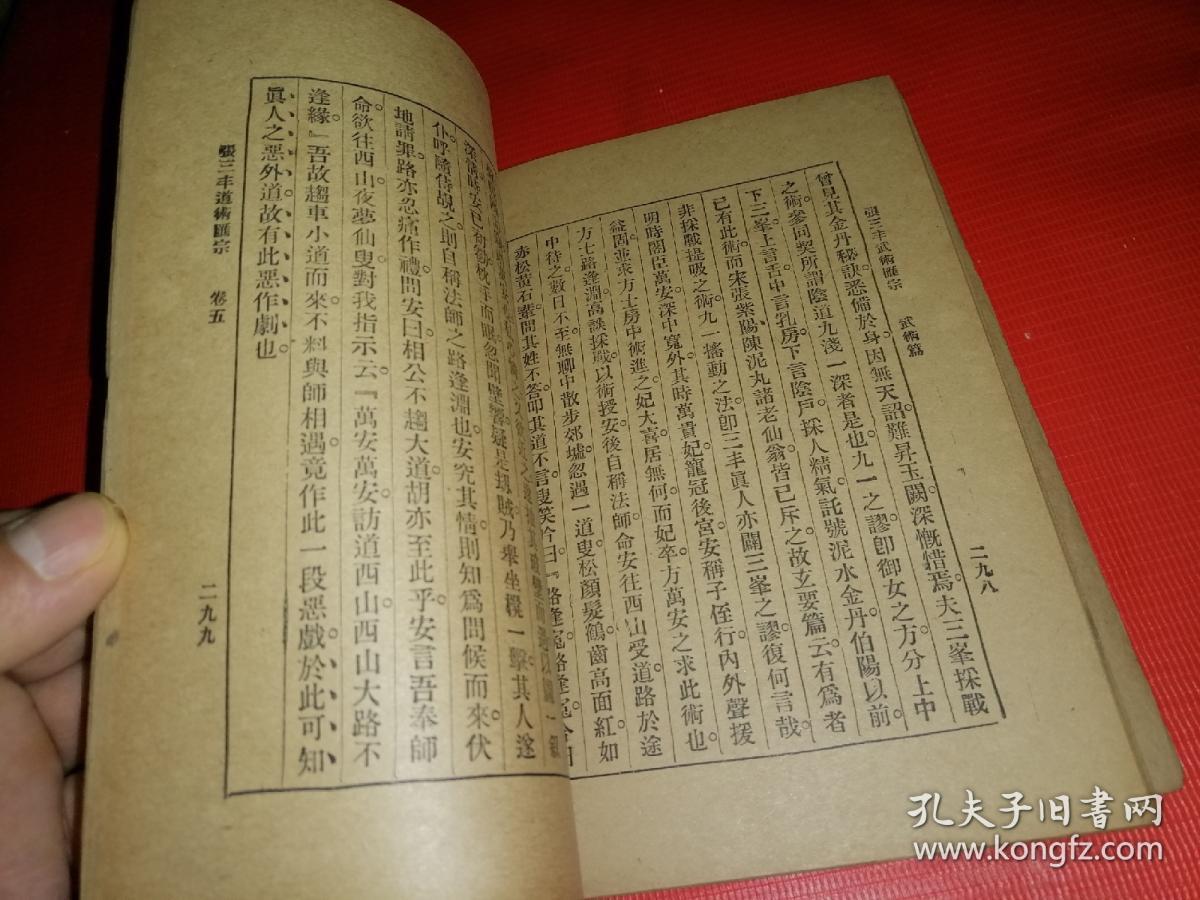 張三丰武術匯宗　武術篇　二九八
曾見其金丹秘訣悉備於身。因無天詔。難昇玉闕。深慨惜焉。夫三峯採戰
之術。參同契所謂陰道九淺一深者是也。九一之謬。卽御女之方。分上中
下三峯。上言舌。中言乳房。下言陰戶。採人精氣。託號泥水金丹。伯陽以前。
已有此術。而宋張紫陽陳泥丸諸老仙翁。皆已斥之。故玄要篇云。有爲者
非採戰提吸之術。九一搖動之法。卽三丰眞人亦闢三峯之謬。復何言哉。
明時閣臣萬安。深中寃外。其時萬貴妃寵冠後宮。安稱子侄行。內外聲援
益固。並求方士房中術進之。妃大喜。居無何而妃卒。方萬安之求此術也。
方士路逢淵高談採戰。以術授安。後自稱法師。命安往西山受道。路於途
中待之。數日不至。無聊中散步郊墟。忽遇一道叟。松顏髮鶴。齒高面紅。如
赤松黃石輩。問其姓不答。叩其道不言。叟笑吟曰。『路逢寃。路逢寃。
深
仆。呼
之。則自稱法師之路逢淵也。安究其情。則知爲問候而來。伏
地請罪。路亦忍痛作禮。問安曰。相公不趨大道。胡亦至此乎。安言吾奉師
命。欲往西山。夜夢仙叟對我指示云。『萬安萬安。訪道西山。西山大路不
逢緣。』吾故趨車小道而來。不料與師相遇。竟作此一段惡戲。於此可知
眞人之惡外道。故有此惡作劇也。
張三丰道術匯宗　卷五　二九九
孔夫子旧书网
www.kongfz.com